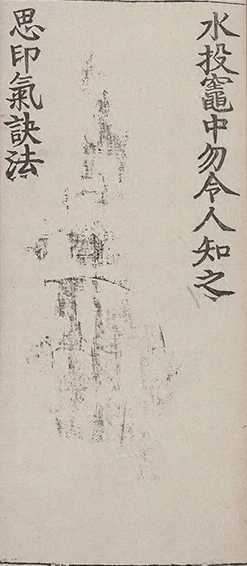 水投竈中勿令人知之
思印氣訣法